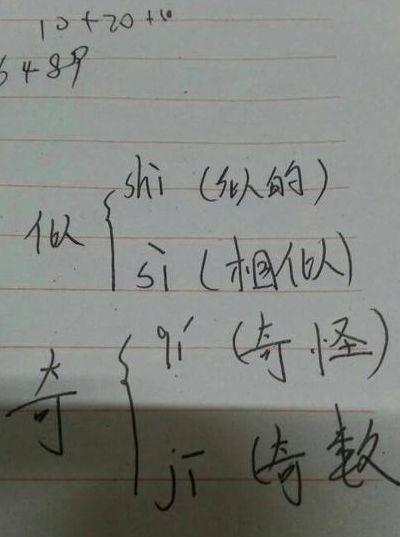 10+20+10
似 { shì (似的)
sì (相似)
奇 { qí (奇怪)
jī (奇数